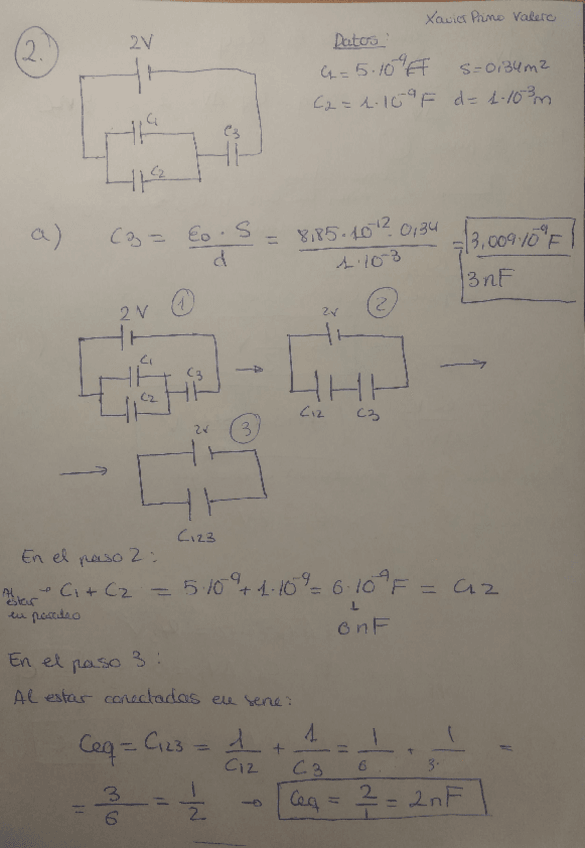 Xavier Primo Valera
2.
2V
C1
C2
C3
Datos:
C1 = 5·10^-9 F S = 0,34 m2
C2 = 1·10^-9 F d = 1·10^-3 m
a) C3 = ε0 · S / d = 8,85·10^-12 · 0,34 / 1·10^-3 = 3,009·10^-9 F
3 nF
2V 1
C1
C2
C3
2V 2
C12 C3
2V 3
C123
En el paso 2:
Al estar en paralelo → C1 + C2 = 5·10^-9 + 1·10^-9 = 6·10^-9 F = C12
6 nF
En el paso 3:
Al estar conectadas en serie:
Ceq = C123 = 1/C12 + 1/C3 = 1/6 + 1/3 =
= 3/6 = 1/2 → Ceq = 2/1 = 2nF